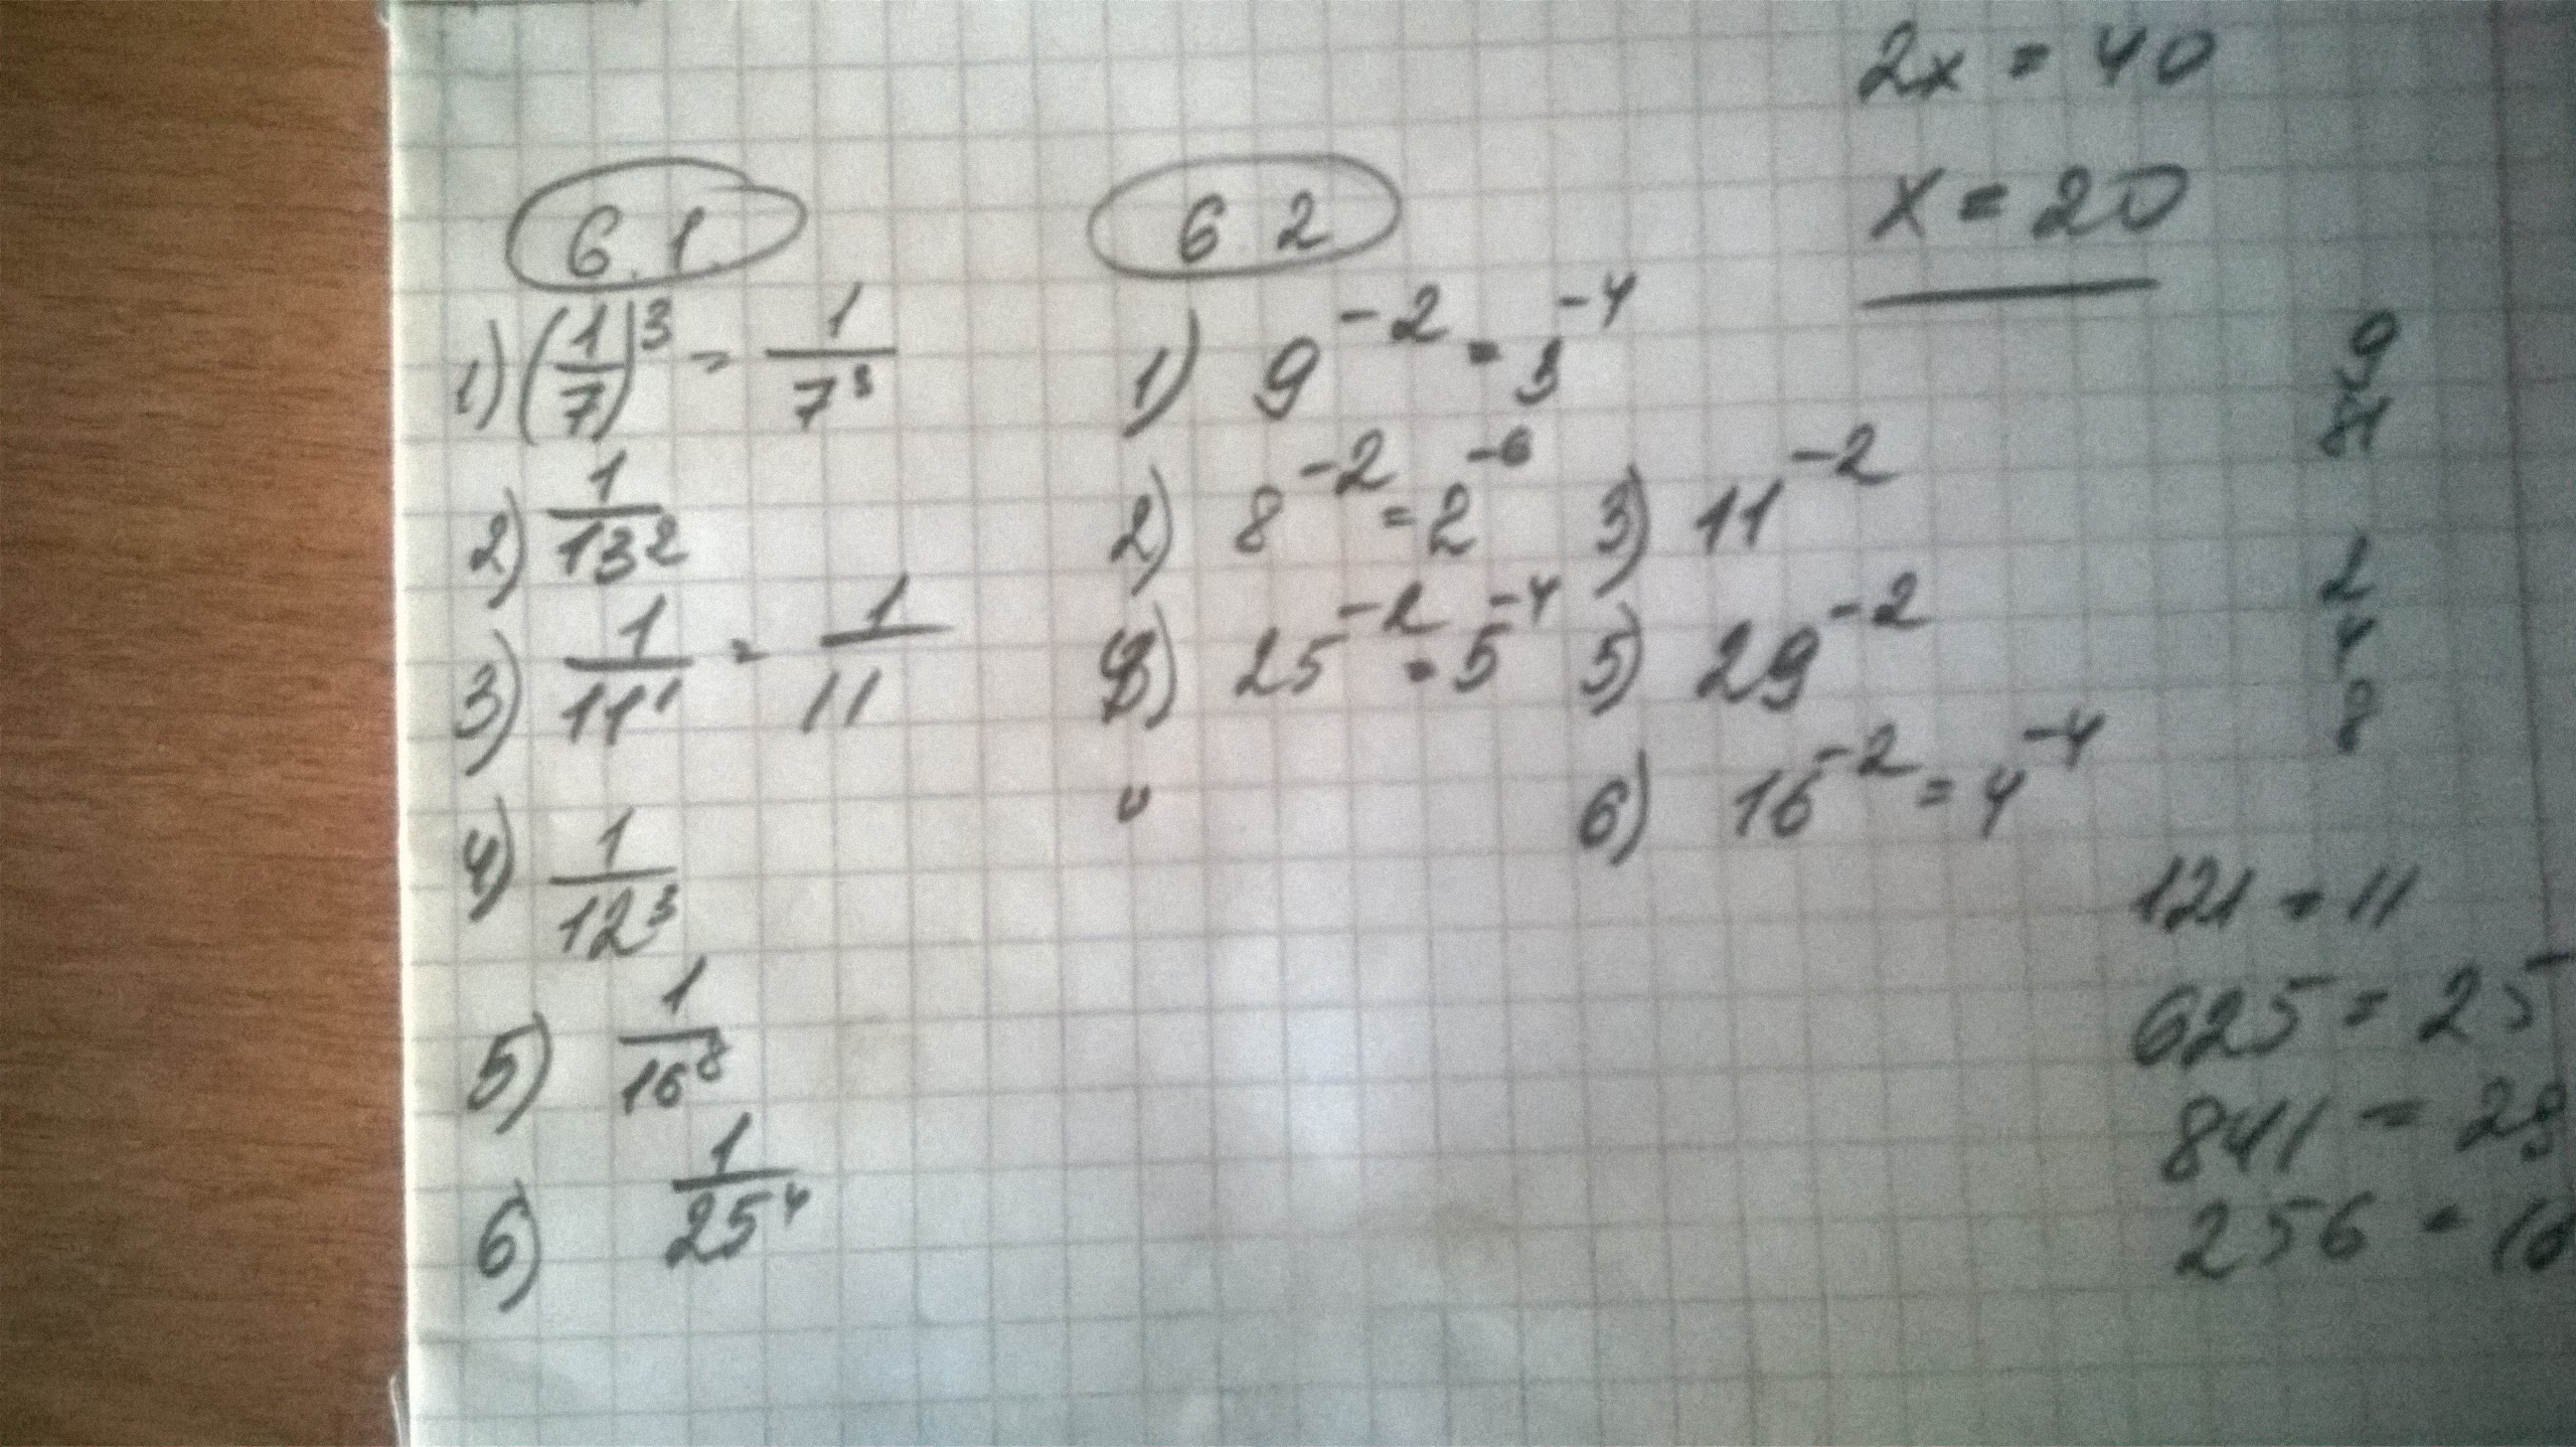 2x = 40
x = 20
6.1.
1) (1/7)^3 = 1/7^3
2) 1/13^2
3) 1/11^1 = 1/11
4) 1/12^3
5) 1/16^8
6) 1/25^4
6 2
1) 9^-2 = 3^-4
2) 8^-2 = 2^-6 3) 11^-2
25^-2 = 5^-4 5) 29^-2
6) 16^-2 = 4^-4
9
81
2
4
8
121 = 11
625 = 25
841 = 29
256 = 16